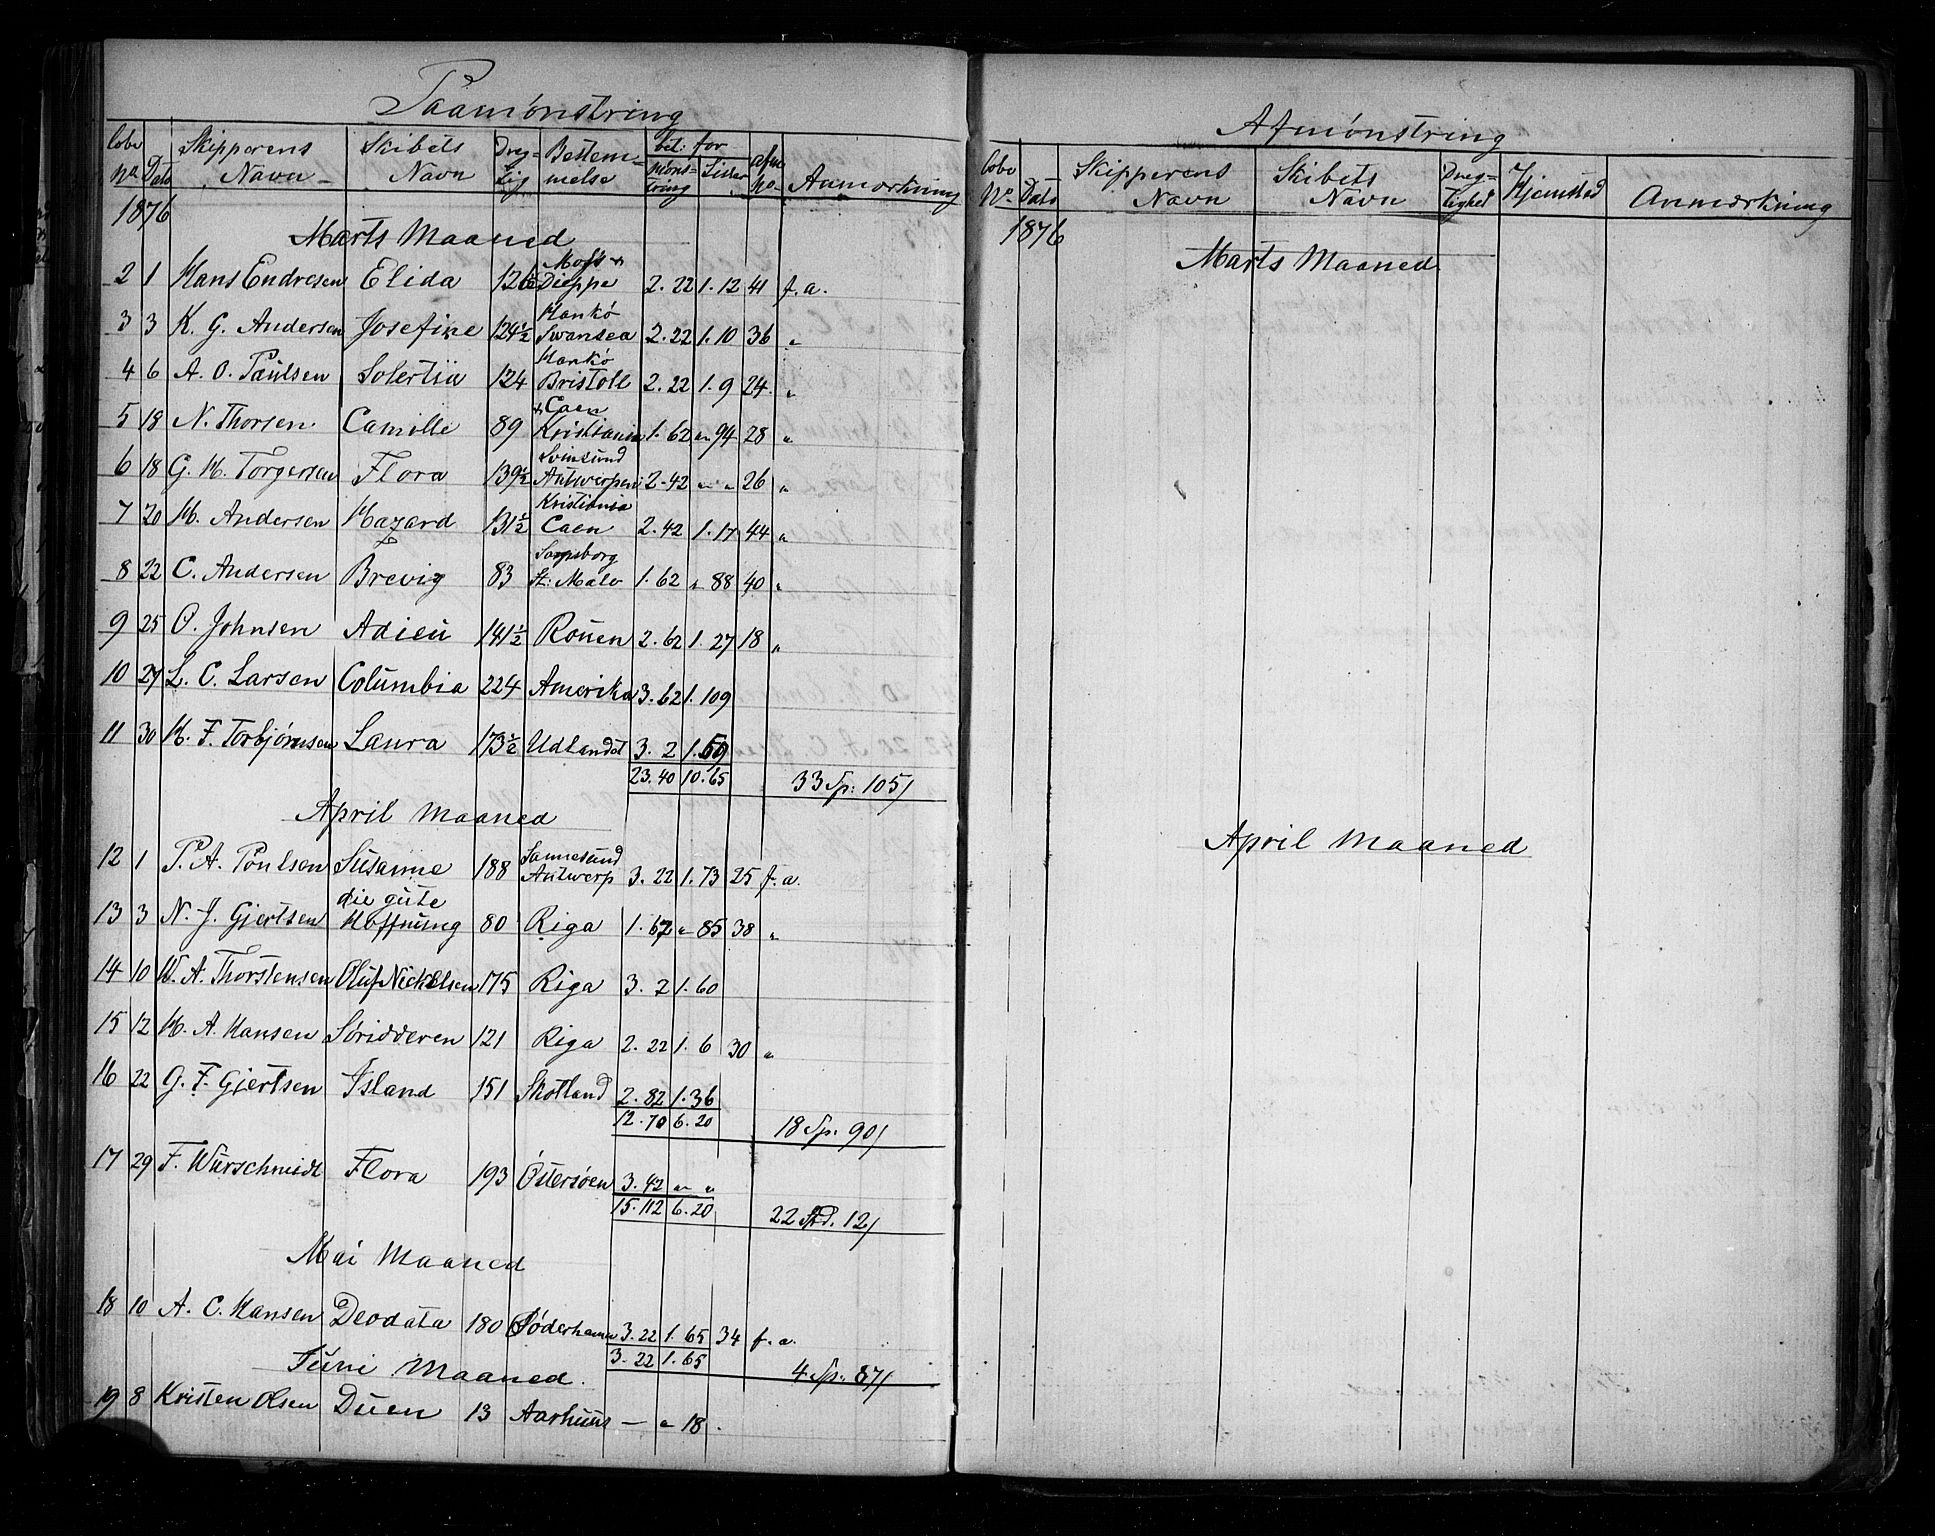 Paamönstring
Löbe No. Dato Skipperens Navn Skibets Navn Dræg-tig Bestem-melse bet: for Mönst-ring Lister afm No. Anmærkning
1876
Marts Maaned
Moss +
2 1 Hans Endresen Elida 126½ Dieppe 2. 22 1. 12 41 f. a.
Hankö
3 3 K. G. Andersen Josefine 124½ Swansea 2. 22 1. 10 36 "
Hankö
4 6 A. O. Paulsen Solertia 124 Bristoll 2. 22 1. 9 24 "
+ Caen
5 18 N. Thorsen Camille 89 Kristiania 1. 62 " 94 28 "
Svinsund
6 18 G. M. Torgersen Flora 139½ Antwerpen 2. 42 " " 26 "
Kristiania
7 20 M. Andersen Hazard 131½ Caen 2. 42 1. 17 44 "
Sarpsborg
8 22 C. Andersen Brevig 83 St: Malo 1. 62 " 88 40 "
9 25 O. Johnsen Adieu 141½ Rouen 2. 62 1. 27 18 "
10 27 L. C. Larsen Columbia 224 Amerika 3. 62 1. 109
11 30 H. F. Torbjörnsen Laura 173½ Udlandet 3. 2 1. 59
23. 40 10. 65 33 Sp: 105/
April Maaned
Sannesund
12 1 P. A. Poulsen Susanne 188 Antwerp 3. 22 1. 73 25 f. a.
die gute
13 3 N. J. Gjertsen Hoffnung 80 Riga 1. 62 " 85 38 "
14 10 H. A. Thorstensen Oluf Nickelsen 175 Riga 3. 2 1. 60
15 12 H. A. Hansen Söridderen 121 Riga 2. 22 1. 6 30 "
16 22 G. F. Gjertsen Island 151 Skotland 2. 82 1. 36
12. 70 6. 20 18 Sp. 90/
17 29 F. Wurschmidt Flora 193 Östersöen 3. 42 " "
15. 112 6. 20 22 Spd. 12/
Mai Maaned
18 10 A. C. Hansen Deodata 180 Söderhamn 3. 22 1. 65 34 f. a.
3. 22 1. 65 4 Sp: 87/
Juni Maaned.
19 8 Kristen Olsen Duen 13 Aarhuus — " 18.
Afmönstring
Löbe No. Dato Skipperens Navn Skibets Navn Dræg-tighed Hjemsted Anmærkning
1876
Marts Maaned
April Maaned